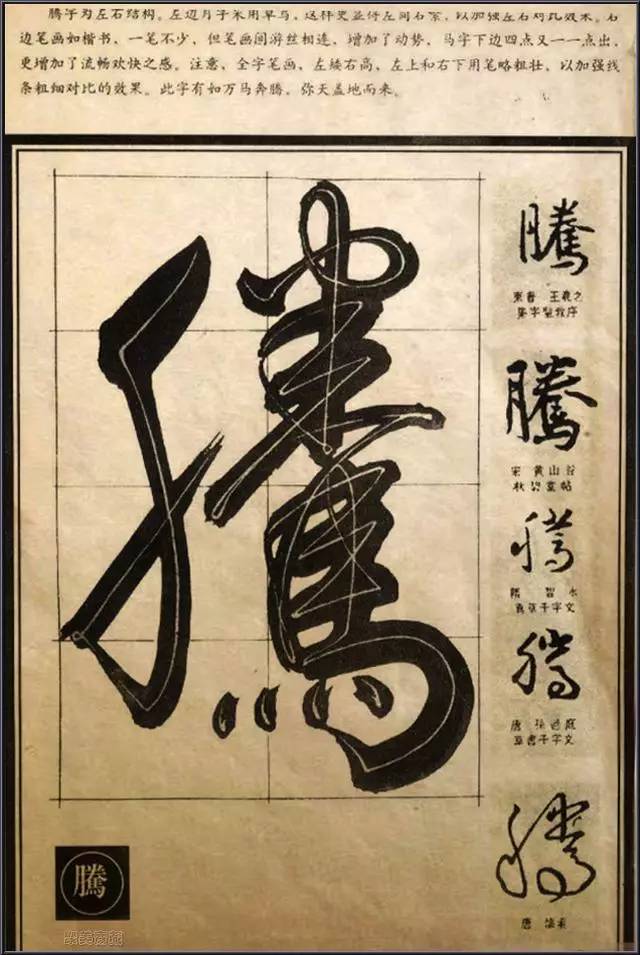 腾字为左右结构。左边月字采用草写，这样更显得左简右繁，以加强左右对比效果。右
边笔画如楷书、一笔不少，但笔画间游丝相连，增加了动势，马字下边四点又一一点出，
更增加了流畅欢快之感。注意，全字笔画，左矮右高，左上和右下用笔略粗壮，以加强线
条粗细对比的效果。此字有如万马奔腾，弥天盖地而来。
騰
騰
东晋 王羲之
集字圣教序
騰
宋 黄山谷
騰
隋 智永
真草千字文
騰
唐 孙过庭
草书千字文
騰
唐 怀素
騰